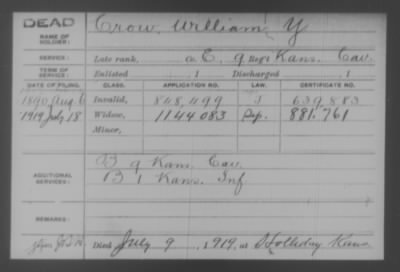 DEAD
Crow, William Y
NAME OF SOLDIER:
SERVICE: Late rank, Co. E, 9 Reg't Kans. Cav.
TERM OF SERVICE: Enlisted , 1 Discharged , 1
DATE OF FILING. CLASS. APPLICATION NO. LAW. CERTIFICATE NO.
1890 Aug. 6 Invalid, 848,499 J 639,883
1919 July 18 Widow, 1144083 881,761
Minor,
ADDITIONAL SERVICES:
B 9 Kans. Cav.
B 1 Kans. Inf.
REMARKS:
Died July 9, 1919, at Holliday Kans.